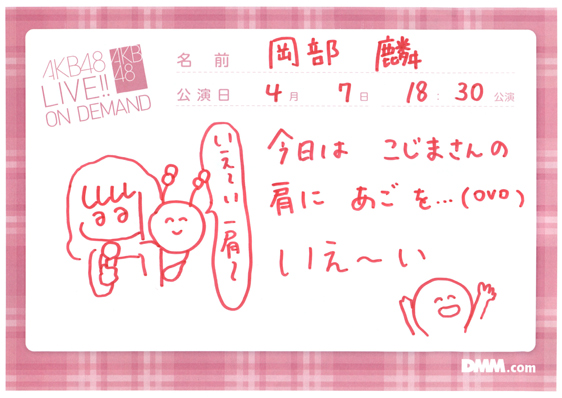 AKB48
LIVE!!
ON DEMAND
AKB
48
名 前 岡部 麟
公演日 4月 7日 18:30 公演
今日は こじまさんの
肩に あごを…(OVO)
いえ〜い
いえ〜い肩〜
DMM.com